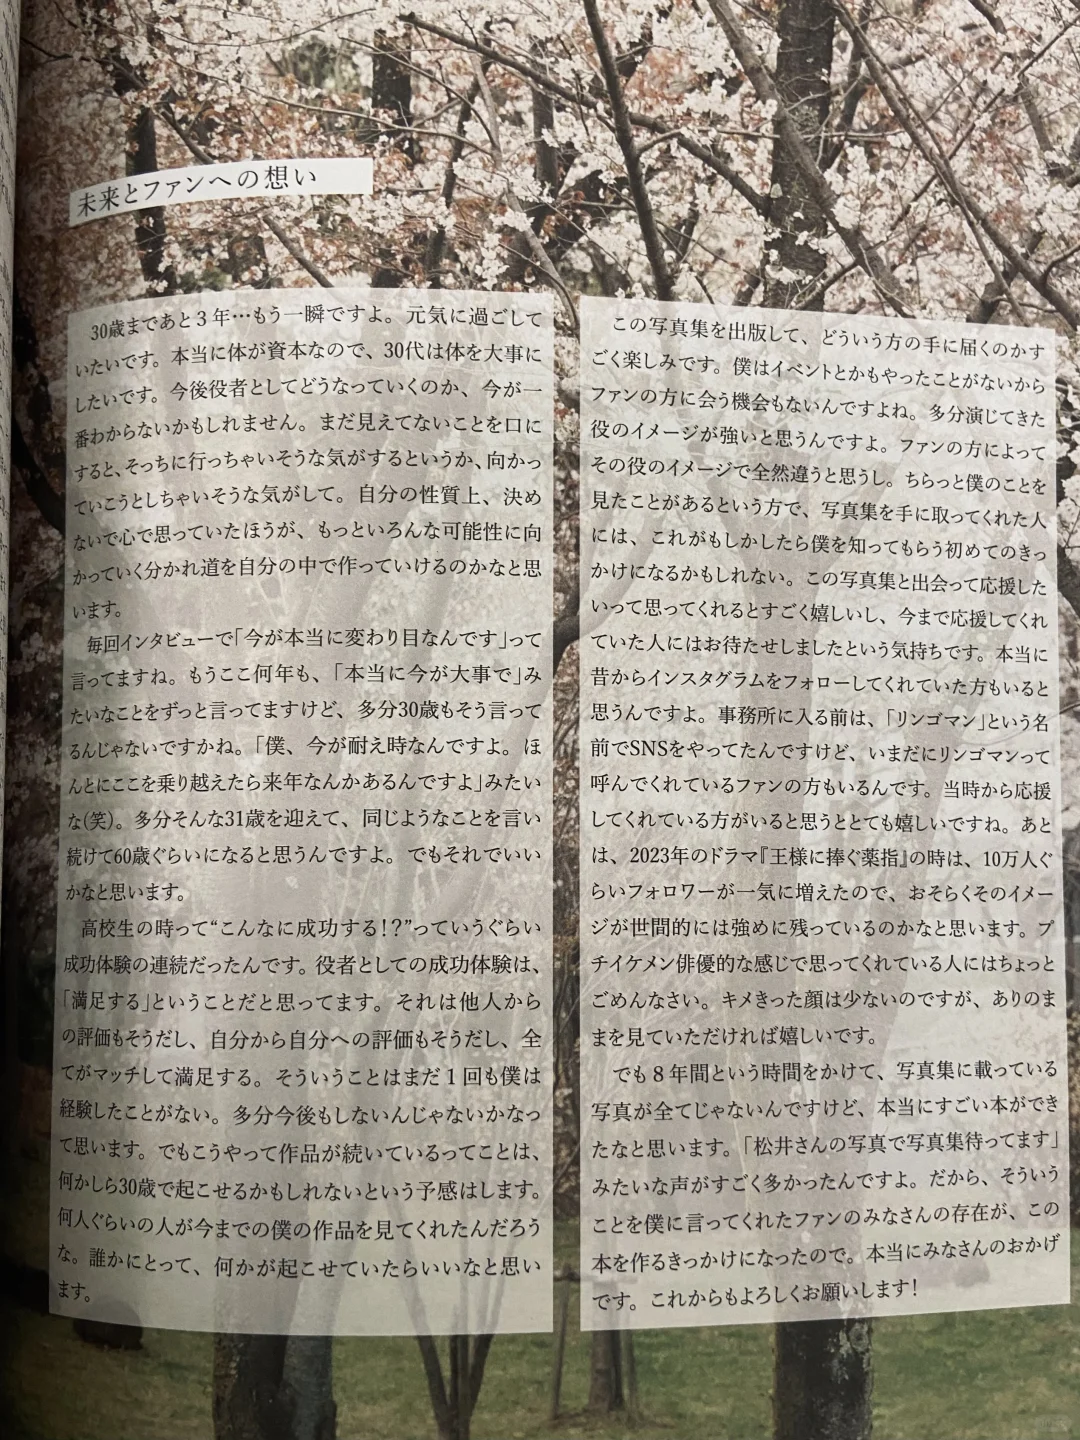 未来とファンへの想い
30歳まであと3年…もう一瞬ですよ。元気に過ごして
いたいです。本当に体が資本なので、30代は体を大事に
したいです。今後役者としてどうなっていくのか、今が一
番わからないかもしれません。まだ見えてないことを口に
すると、そっちに行っちゃいそうな気がするというか、向かっ
ていこうとしちゃいそうな気がして。自分の性質上、決め
ないで心で思っていたほうが、もっといろんな可能性に向
かっていく分かれ道を自分の中で作っていけるのかなと思
います。
毎回インタビューで「今が本当に変わり目なんです」って
言ってますね。もうここ何年も、「本当に今が大事で」み
たいなことをずっと言ってますけど、多分30歳もそう言って
るんじゃないですかね。「僕、今が耐え時なんですよ。ほ
んとにここを乗り越えたら来年なんかあるんですよ」みたい
な(笑)。多分そんな31歳を迎えて、同じようなことを言い
続けて60歳ぐらいになると思うんですよ。でもそれでいい
かなと思います。
高校生の時って“こんなに成功する!?”っていうぐらい
成功体験の連続だったんです。役者としての成功体験は、
「満足する」ということだと思ってます。それは他人から
の評価もそうだし、自分から自分への評価もそうだし、全
てがマッチして満足する。そういうことはまだ1回も僕は
経験したことがない。多分今後もしないんじゃないかなっ
て思います。でもこうやって作品が続いているってことは、
何かしら30歳で起こせるかもしれないという予感はします。
何人ぐらいの人が今までの僕の作品を見てくれたんだろう
な。誰かにとって、何かが起こせていたらいいなと思い
ます。
この写真集を出版して、どういう方の手に届くのかす
ごく楽しみです。僕はイベントとかもやったことがないから
ファンの方に会う機会もないんですよね。多分演じてきた
役のイメージが強いと思うんですよ。ファンの方によって
その役のイメージで全然違うと思うし。ちらっと僕のことを
見たことがあるという方で、写真集を手に取ってくれた人
には、これがもしかしたら僕を知ってもらう初めてのきっ
かけになるかもしれない。この写真集と出会って応援した
いって思ってくれるとすごく嬉しいし、今まで応援してくれ
ていた人にはお待たせしましたという気持ちです。本当に
昔からインスタグラムをフォローしてくれていた方もいると
思うんですよ。事務所に入る前は、「リンゴマン」という名
前でSNSをやってたんですけど、いまだにリンゴマンって
呼んでくれているファンの方もいるんです。当時から応援
してくれている方がいると思うととても嬉しいですね。あと
は、2023年のドラマ『王様に捧ぐ薬指』の時は、10万人ぐ
らいフォロワーが一気に増えたので、おそらくそのイメー
ジが世間的には強めに残っているのかなと思います。プ
チイケメン俳優的な感じで思ってくれている人にはちょっと
ごめんなさい。キメきった顔は少ないのですが、ありのま
まを見ていただければ嬉しいです。
でも8年間という時間をかけて、写真集に載っている
写真が全てじゃないんですけど、本当にすごい本ができ
たなと思います。「松井さんの写真で写真集待ってます」
みたいな声がすごく多かったんですよ。だから、そういう
ことを僕に言ってくれたファンのみなさんの存在が、この
本を作るきっかけになったので。本当にみなさんのおかげ
です。これからもよろしくお願いします!